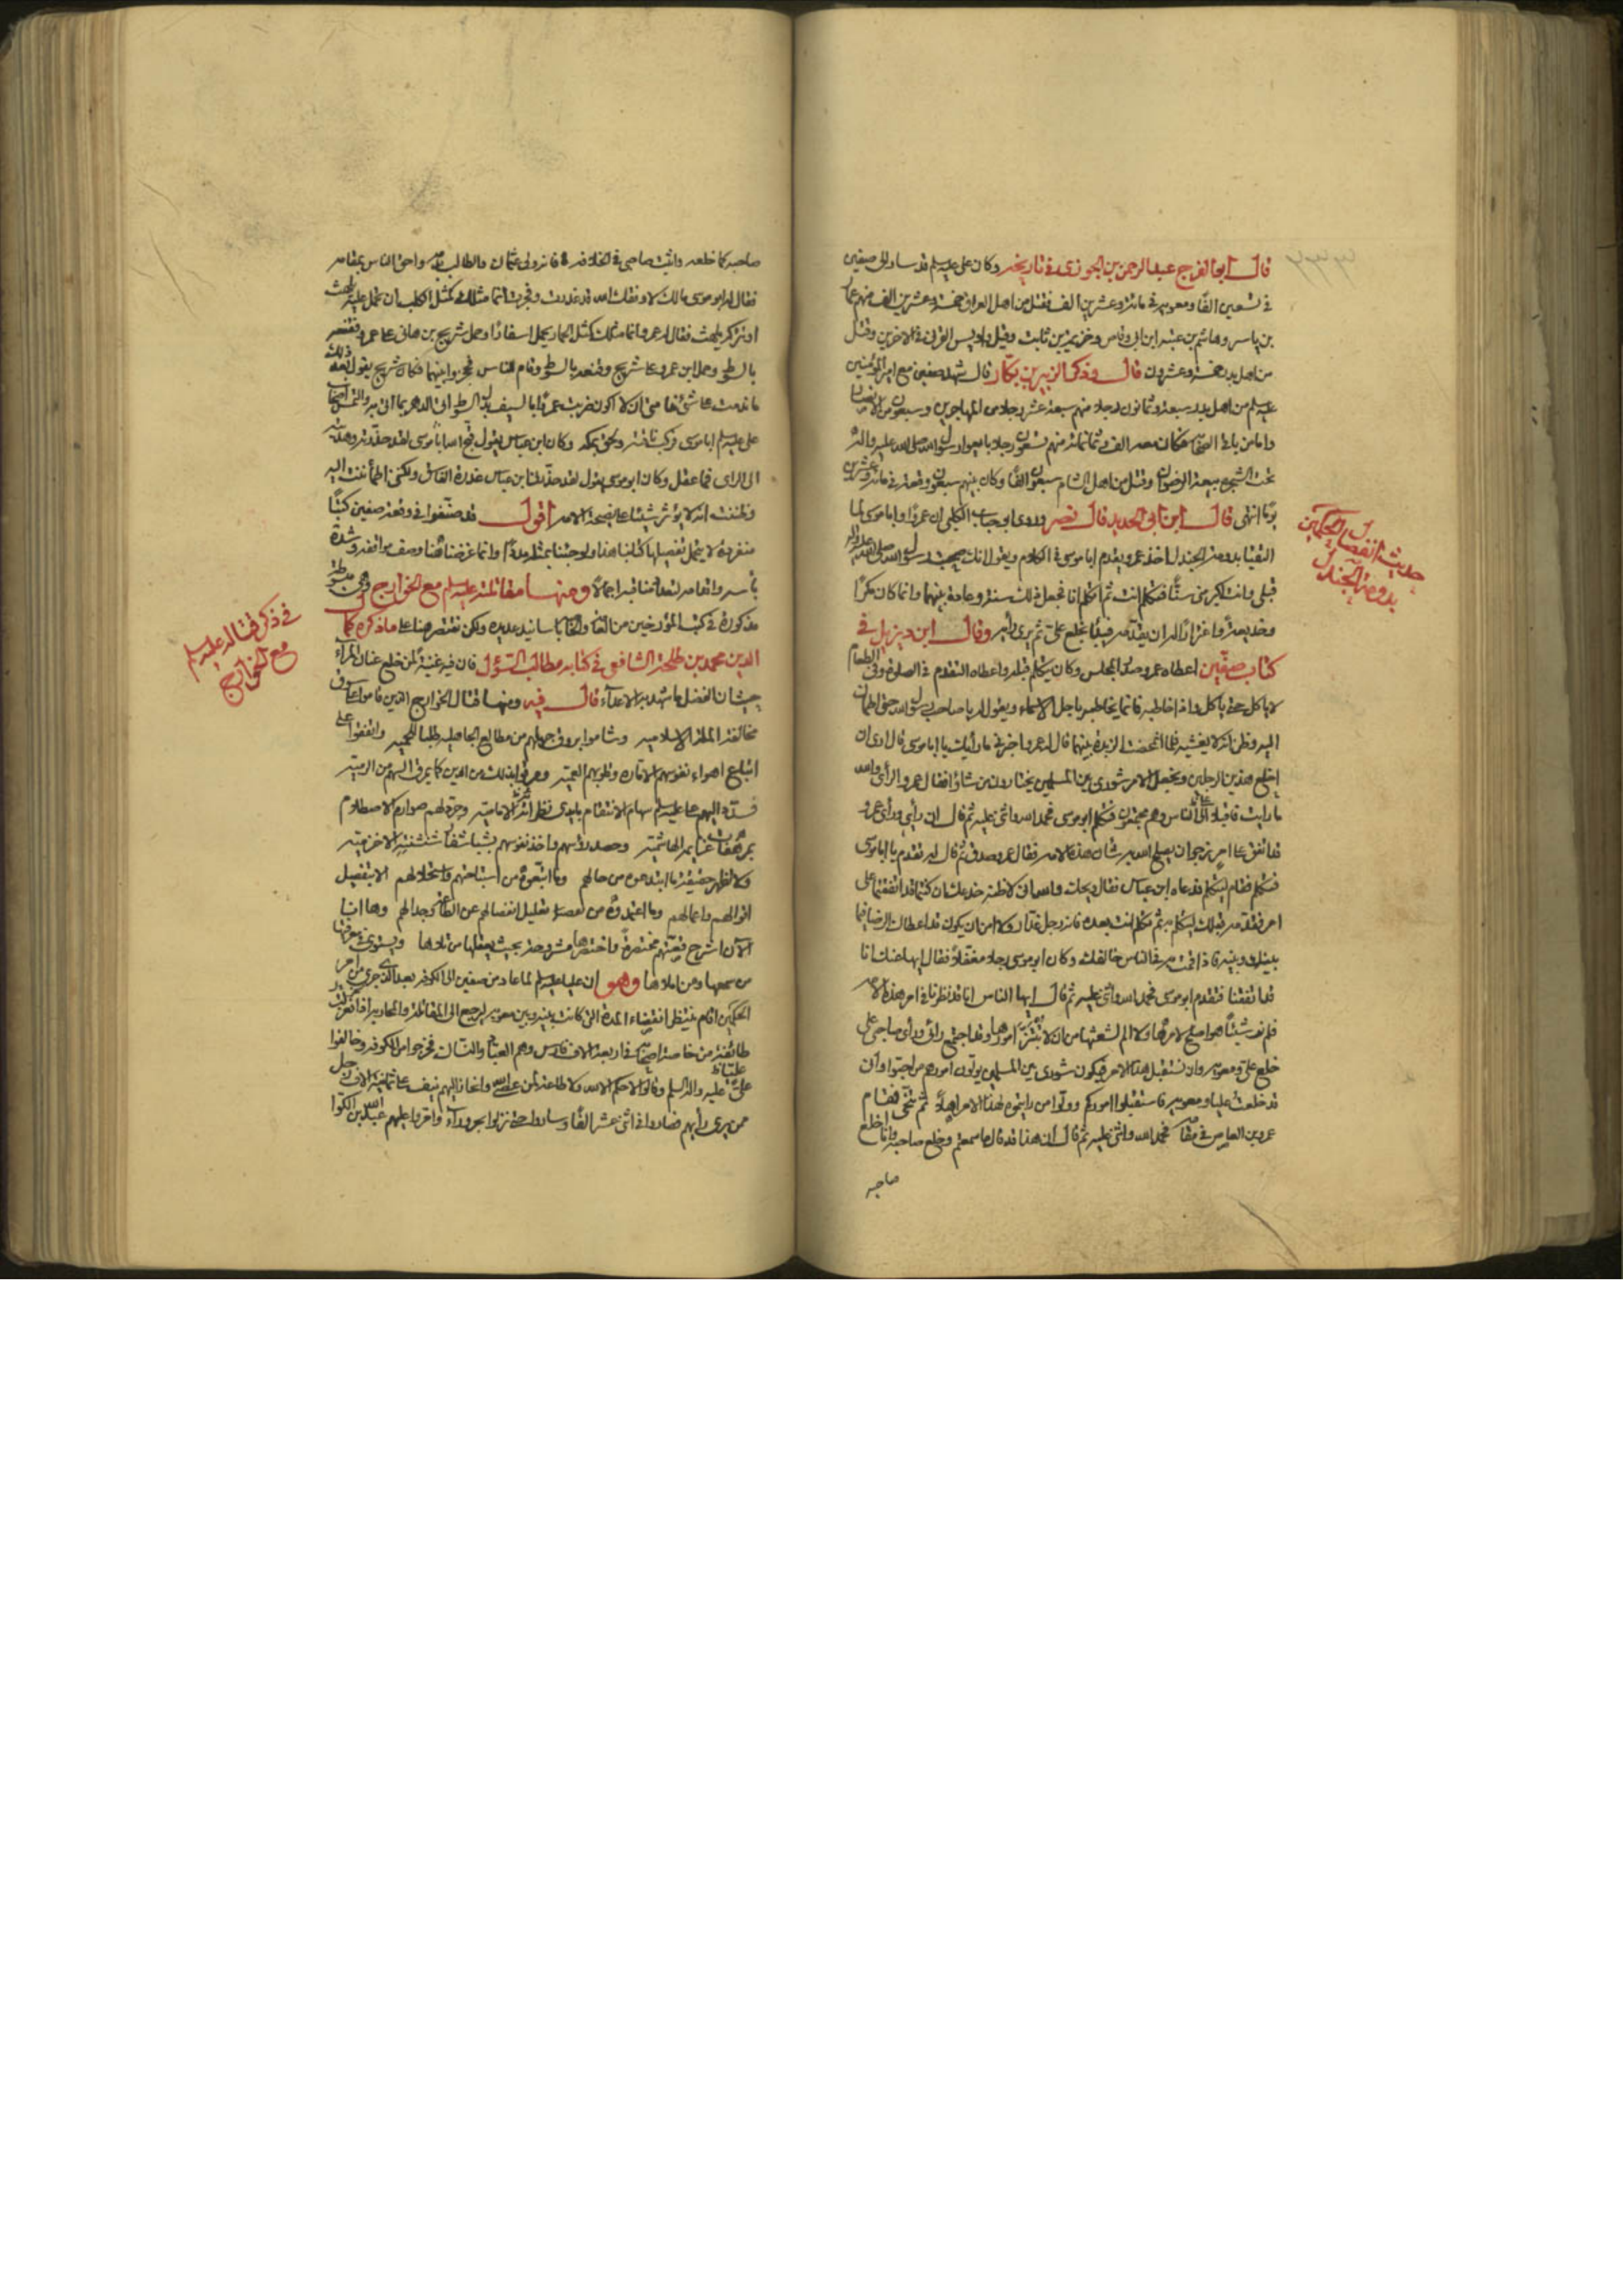 قال ابو الفرج عبد الرحمن بن الجوزى فى تاريخه وكان على عليه السلم قد سار الى صفين
فى تسعين الفا ومعويه فى مائة وعشرين الف فقتل من اهل العراق خمسة وعشرين الف منهم عمار
بن ياسر وهاشم بن عتبه ابن ابى وقاص وخزيمة بن ثابت وقيل واويس القرنى فى الاخرين وقتل
من اهل بدر خمسة وعشرون قال وذكر الزبير بن بكار قال شهد صفين مع امير المؤمنين
عليه السلم من اهل بدر سبعة وثمانون رجلا منهم سبعة عشر رجلا من المهاجرين وسبعون من الانصار
واما من باقى الصحابة فكان معه الف وثمانمائة منهم تسعون رجلا بايعوا رسول الله صلى الله عليه واله
تحت الشجرة بيعة الرضوان وقتل من اهل الشام سبعون الفا وكان بينهم سبعون وقعة فى مائة وعشرين
يوما انتهى قال ابن ابى الحديد قال نصر وروى ابو جناب الكلبى ان عمروا وابا موسى لما
التقيا بدومة الجندل اخذ عمرو يقدم ابا موسى فى الكلام ويقول انك صحبت رسول الله صلى الله عليه واله
قبلى وانت اكبر منى سنا فتكلم انت ثم اتكلم انا فجعل ذلك سنة وعادة بينهما وانما كان مكرا
وخديعة واغترارا له ان يقدمه فيبدأ بخلع على ثم يرى رأيه وقال ابن ديزيل فى
كتاب صفين اعطاه عمرو صدر المجلس وكان يتكلم قبله واعطاه التقدم فى الصلوة وفى الطعام
لا ياكل حتى ياكل واذا خاطبه فانما يخاطبه باجل الاسماء ويقول له يا صاحب رسول الله حتى اطمان
اليه وظن انه لا يغشه فلما انمخضت الزبدة بينهما قال له عمرو اخبرنى ما رأيك يا ابا موسى قال ارى ان
اخلع هذين الرجلين ونجعل الامر شورى بين المسلمين يختارون من شاؤا فقال عمرو الرأى والله
ما رايت فاقبلا الى الناس وهم مجتمعون فتكلم ابو موسى فحمد الله واثنى عليه ثم قال ان رأيى ورأى عمرو
قد اتفق على امر نرجو ان يصلح الله به شان هذه الامه فقال عمرو صدق ثم قال له تقدم يا ابا موسى
فتكلم فقام ليتكلم فدعاه ابن عباس فقال ويحك والله انى لاظنه خدعك ان كنتما قد اتفقتما على
امر فقدمه قبلك ليتكلم به ثم تكلم انت بعده فانه رجل غدار ولا امن ان يكون قد اعطاك الرضا فيما
بينك وبينه فاذا قمت به فى الناس خالفك وكان ابو موسى رجلا مغفلا فقال ايها عنك انا
قد اتفقنا فتقدم ابو موسى فحمد الله واثنى عليه ثم قال ايها الناس انا قد نظرنا فى امر هذه الامه
فلم نر شيئا هو اصلح لامرها ولا الم لشعثها من ان لا تبتز امورها وقد اجتمع رائى ورأى صاحبى على
خلع على ومعويه وان نستقبل هذا الامر فيكون شورى بين المسلمين يولون امورهم من احبوا وانى
قد خلعت عليا ومعويه فاستقبلوا اموركم وولوا من رايتموه لهذا الامر اهلا ثم تنحى فقام
عمرو بن العاص فى مقامه فحمد الله واثنى عليه ثم قال ان هذا قد قال ما سمعتم وخلع صاحبه وانا اخلع
صاحبه
حديث انفصال الحكمين
بدومة الجندل
صاحبه كما خلعه واثبت صاحبى فى الخلافة فانه ولى عثمان والطالب بدمه واحق الناس بمقامه
فقال له ابو موسى مالك لا وفقك الله قد غدرت وفجرت انما مثلك كمثل الكلب ان تحمل عليه يلهث
او تتركه يلهث فقال له عمرو انما مثلك كمثل الحمار يحمل اسفارا وحمل شريح بن هانى على عمرو فقنعه
بالسوط وحمل ابن عمرو على شريح فقنعه بالسوط وقام الناس فحجزوا بينهما فكان شريح يقول بعد ذلك
ما ندمت على شئ ندامتى ان لا اكون ضربت عمروا بالسيف بدل السوط اتى الدهر بما اتى به والتمس اصحاب
على عليه السلم ابا موسى فركب ناقته ولحق بمكه وكان ابن عباس يقول قبح الله ابا موسى لقد حذرته وهديته
الى الراى فما عقل وكان ابو موسى يقول لقد حذرنى ابن عباس غدرة الفاسق ولكنى اطمأننت اليه
وظننت انه لا يؤثر شيئا على نصيحة الامه اقول قد صنفوا فى وقعة صفين كتبا
منفردة لا يحتمل تفصيلها كتابنا هذا ولو جئنا بمثله مددا وانما غرضنا هنا وصف مواقفه وشدة
بأسه واقدامه لتعد من مناقبه اجمالا ومنها مقاتلته عليه السلم مع الخوارج وهى مبسوطة
مذكورة فى كتب المؤرخين باسانيد عديده ولكن نقتصر هنا على ما ذكره كمال
الدين محمد بن طلحة الشافعى فى كتابه مطالب السؤل فان فيه غنية لمن خلع عنان المراء
حيث ان الفضل ما شهد به الاعداء قال فيه ومنها قتال الخوارج الذين قاموا على سوق
مخالفة الملة الاسلاميه وشاموا بروق جهلهم من مطالع الجاهليه طلبا للحميه واتفقوا على
اتباع اهواء نفوسهم الاماره وقلوبهم العميه ومرقوا بذلك من الدين كما يمرق السهم من الرميه
فسدد اليهم على عليه السلم سهام الانتقام بايدى الاماميه وجرد لهم صوارم الاصطلام
بمرهفات عزايمه الهاشميه وحصد رؤسهم واخذ نفوسهم شنشنة الاخزميه
ولا تظهر حقيقة ما ابتدعوه من حالهم وما اتبعوه من استباحتهم واستحلالهم الا بتفصيل
اقوالهم واعمالهم وما اعتمدوه من تعليل انفصالهم عن الطاعة وجدالهم وها انا
الآن اشرح قصتهم مختصرة واختصرها مشروحة بحيث يعقلها من تلاها ويستوى فى معرفتها
من سمعها ومن املاها وهو ان عليا عليه السلم لما عاد من صفين الى الكوفه بعد الذى جرى من امر
الحكمين اقام ينتظر انقضاء المدة التى كانت بينه وبين معويه ليرجع الى المقاتلة والمحاربة اذ انعزلت
طائفة من خاصة اصحابه فى اربعة الاف فارس وهم العباد والنساك فخرجوا من الكوفه وخالفوا
عليا عليه السلم وقالوا لا حكم الا لله ولا طاعة لمن عصى الله وانحاز اليهم نيف على ثمانية الاف رجل
ممن يرى رأيهم فصاروا فى اثنى عشر الفا وساروا حتى نزلوا بحروراء وامروا عليهم عبد الله بن الكوا
فى ذكر قتاله عليه السلم
مع الخوارج